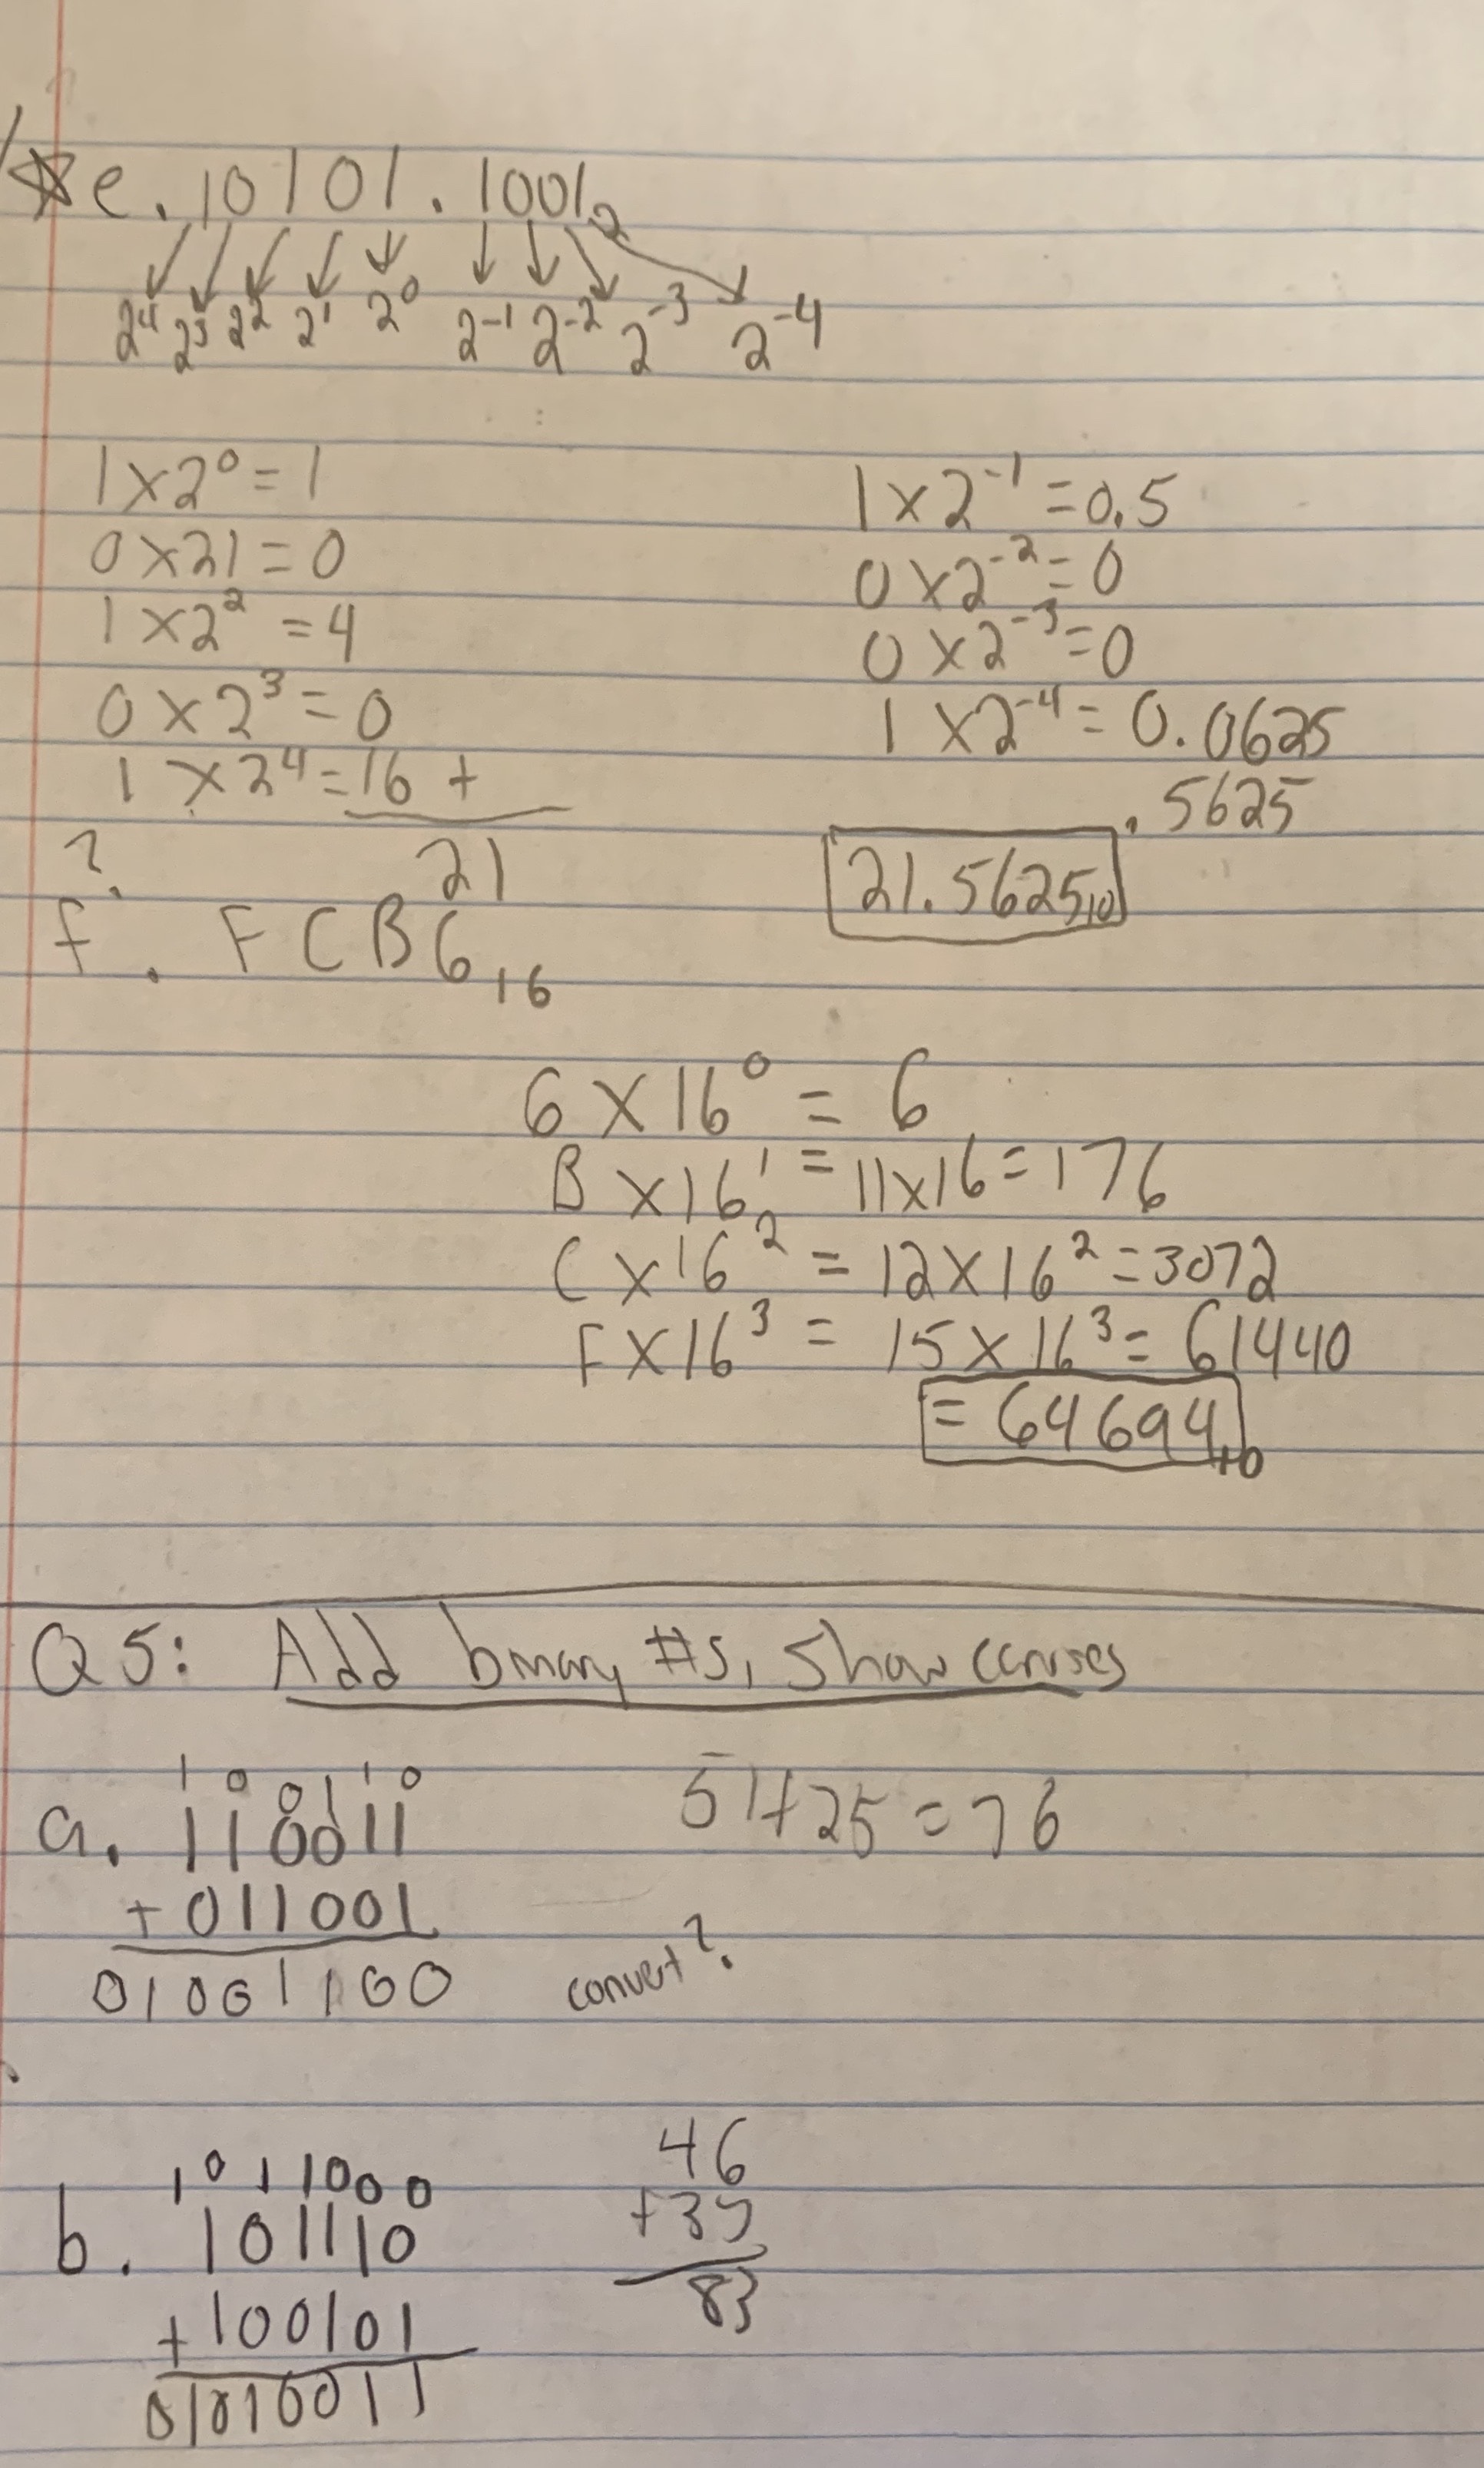 e. 10101.1001₂
2⁴ 2³ 2² 2¹ 2⁰ 2⁻¹ 2⁻² 2⁻³ 2⁻⁴
1 x 2⁰ = 1
0 x 21 = 0
1 x 2² = 4
0 x 2³ = 0
1 x 2⁴ = 16 +
21
1 x 2⁻¹ = 0.5
0 x 2⁻² = 0
0 x 2⁻³ = 0
1 x 2⁻⁴ = 0.0625
.5625
21.5625₁₀
?
f. FCB6₁₆
6 x 16⁰ = 6
B x 16¹ = 11 x 16 = 176
C x 16² = 12 x 16² = 3072
F x 16³ = 15 x 16³ = 61440
= 64694₁₀
Q5: Add binary #s, show carries
1 0 0 1 1 0
a. 110011
+ 011001
01001100
51 + 25 = 76
convert?
1 0 1 1 0 0 0
b. 101110
+ 100101
01010011
46
+ 37
83